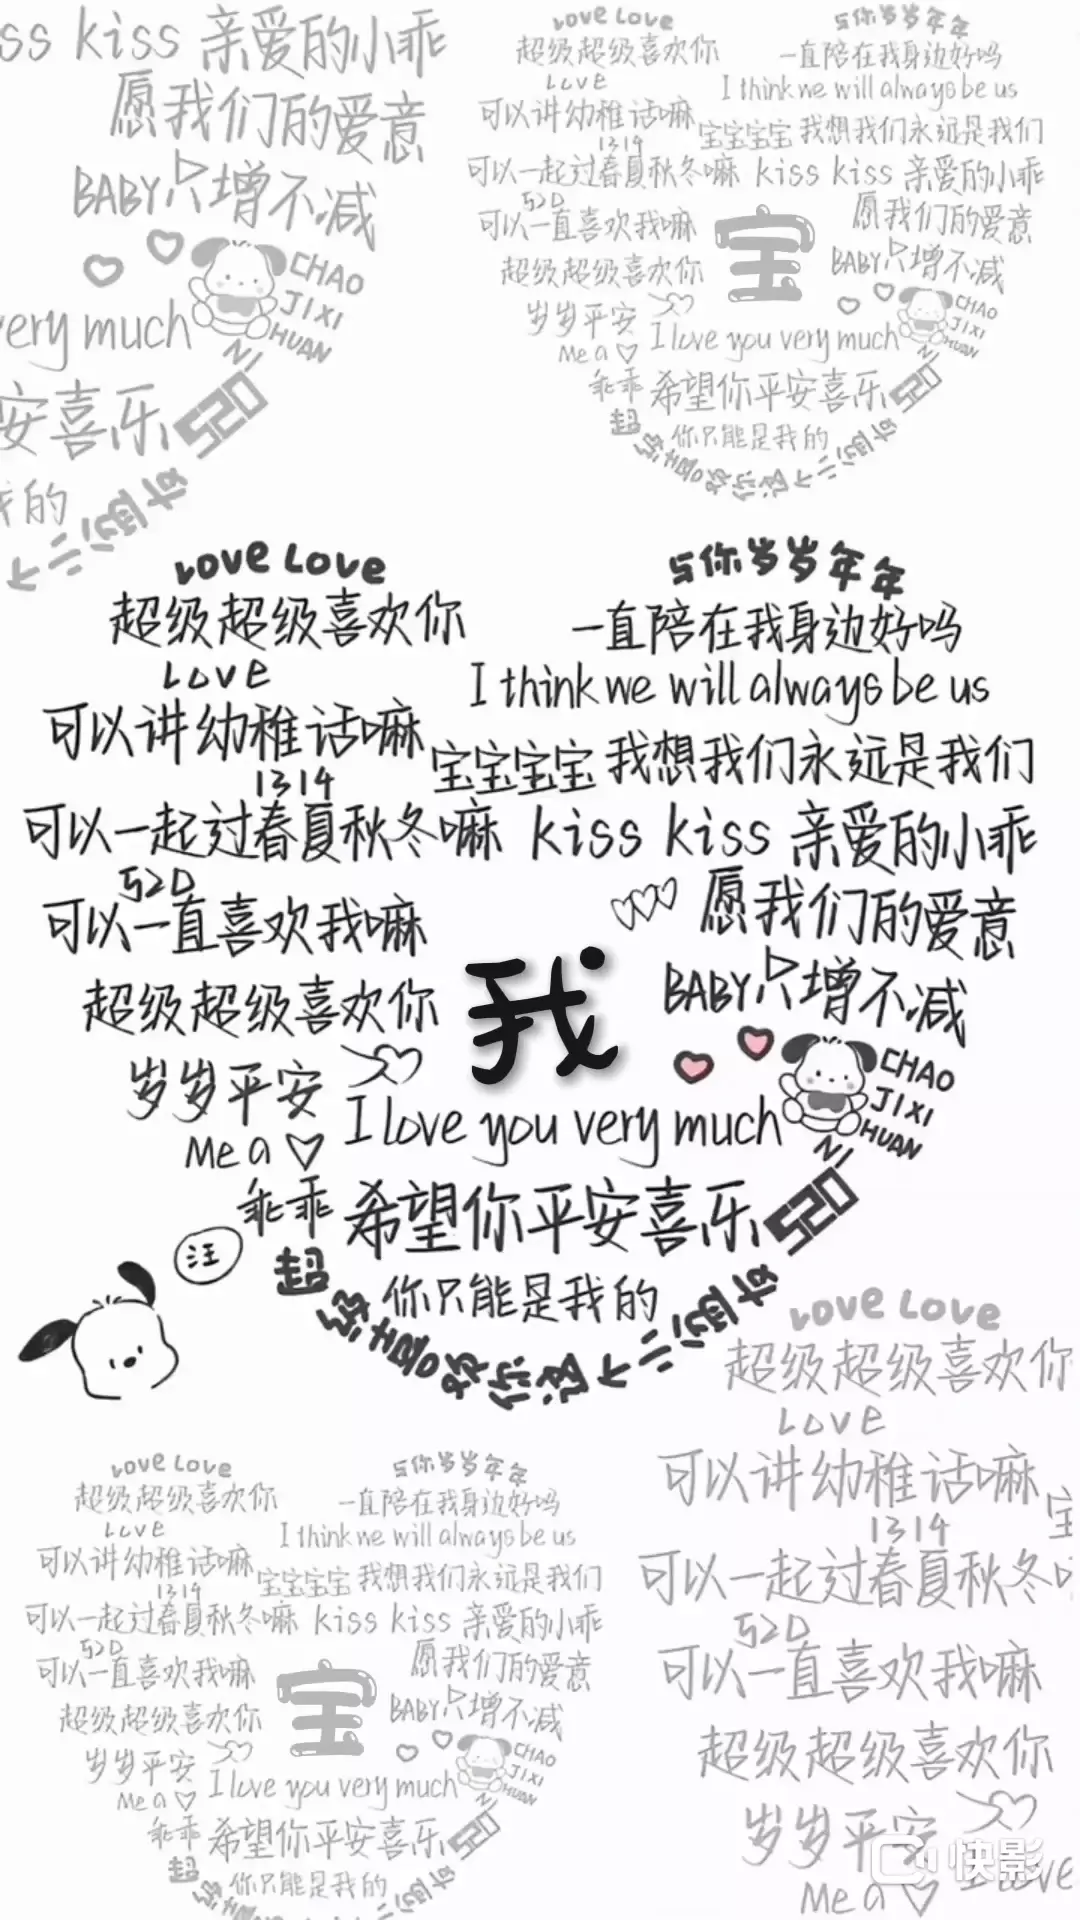 ss kiss 亲爱的小乖
愿我们的爱意
BABY只增不减
CHAO
JI XI
HUAN
NI
very much
安喜乐 520
我的
Love Love
与你岁岁年年
超级超级喜欢你
一直陪在我身边好吗
Love
I think we will always be us
可以讲幼稚话嘛
宝宝宝宝 我想我们永远是我们
1314
可以一起过春夏秋冬嘛 kiss kiss 亲爱的小乖
520
可以一直喜欢我嘛
愿我们的爱意
宝
超级超级喜欢你
BABY只增不减
岁岁平安
CHAO
JI XI
HUAN
NI
Me a ♡ I love you very much
乖乖 希望你平安喜乐 520
你只能是我的
Love Love
与你岁岁年年
超级超级喜欢你
一直陪在我身边好吗
Love
I think we will always be us
可以讲幼稚话嘛
宝宝宝宝 我想我们永远是我们
1314
可以一起过春夏秋冬嘛 kiss kiss 亲爱的小乖
520
可以一直喜欢我嘛
愿我们的爱意
我
超级超级喜欢你
BABY只增不减
岁岁平安
CHAO
JI XI
HUAN
NI
I love you very much
Me a ♡
乖乖 希望你平安喜乐 520
汪
你只能是我的
超级喜欢你这个
Love Love
超级超级喜欢你
Love
可以讲幼稚话嘛
宝
1314
可以一起过春夏秋冬
520
可以一直喜欢我嘛
超级超级喜欢你
岁岁平安
I love
Me a ♡
快影
Love Love
与你岁岁年年
超级超级喜欢你
一直陪在我身边好吗
Love
I think we will always be us
可以讲幼稚话嘛
宝宝宝宝 我想我们永远是我们
1314
可以一起过春夏秋冬嘛 kiss kiss 亲爱的小乖
520
可以一直喜欢我嘛
愿我们的爱意
宝
超级超级喜欢你
BABY只增不减
岁岁平安
CHAO
JI XI
HUAN
NI
Me a ♡ I love you very much
乖乖 希望你平安喜乐 520
你只能是我的